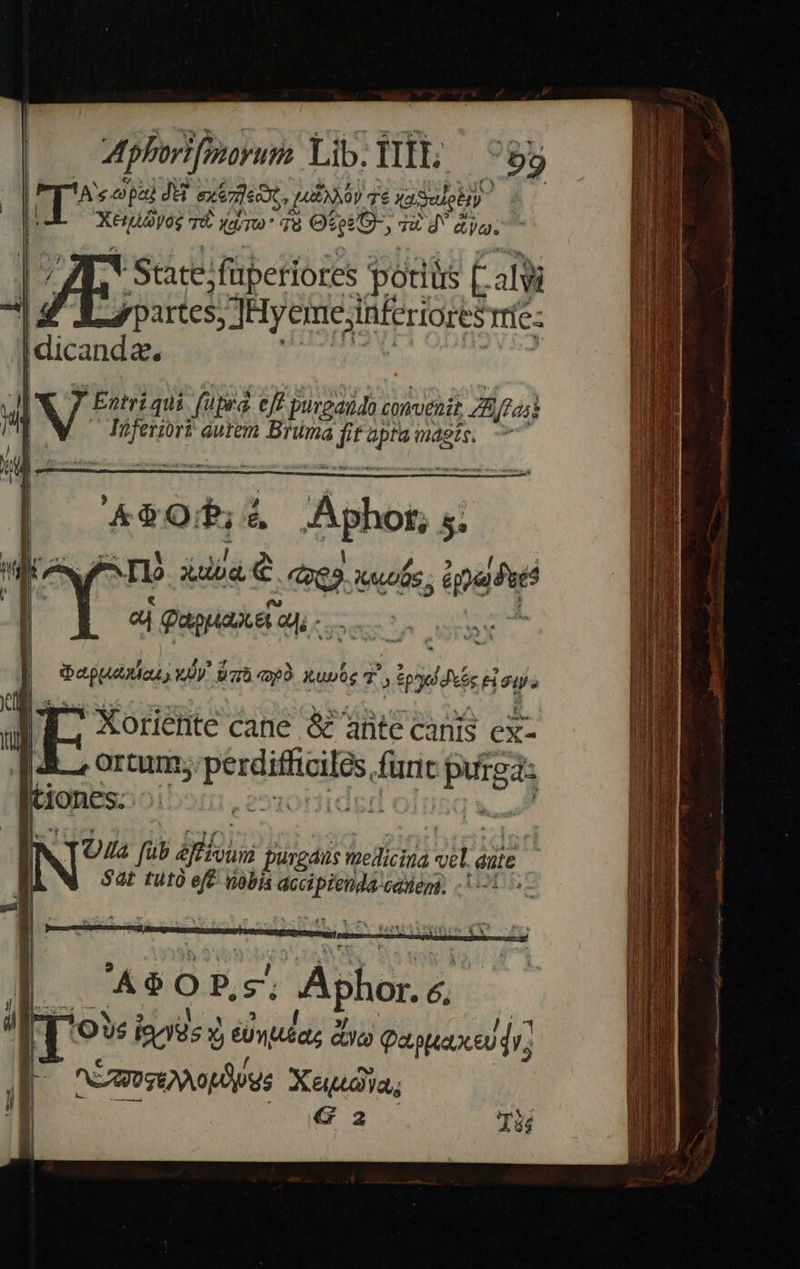 Aphorismorum Lib. IIII. 99
Χειμῶνος τὰ κάτω· τῦ Θέρεος, τὰ δ' ἄνω.
Æ State, superiores potiùs [alvi
partes,] Hyeme, inferiores me-
dicandæ.
VEntri qui suprà est purgando convenit Æstas:
Inferiori autem Bruma fit apta magis.
ἈΦΟΡ. ἑ. Aphor. 5.
Ὑπὸ κύνα & πρὸ κυνός, ἐργώδεες
αἱ φαρμακεῖαι.
Φαρμακίαι, κἠν' ὑπὸ πρὸ κυνός τ', ἐργώδεές εἰσιν.
EXoriente cane & ante canis ex-
ortum, perdifficiles sunt purga-
tiones.
NUlla sub æstivum purgans medicina vel ante
Sat tutò est nobis accipienda canem.
ἈΦΟΡ. ϛ'. Aphor. 6.
ΤΟὺς ἰσχνὲς ϗ εὐημέας ἄνω φαρμακεύειν,
Χειμῶνα,
G 2 Τὰς